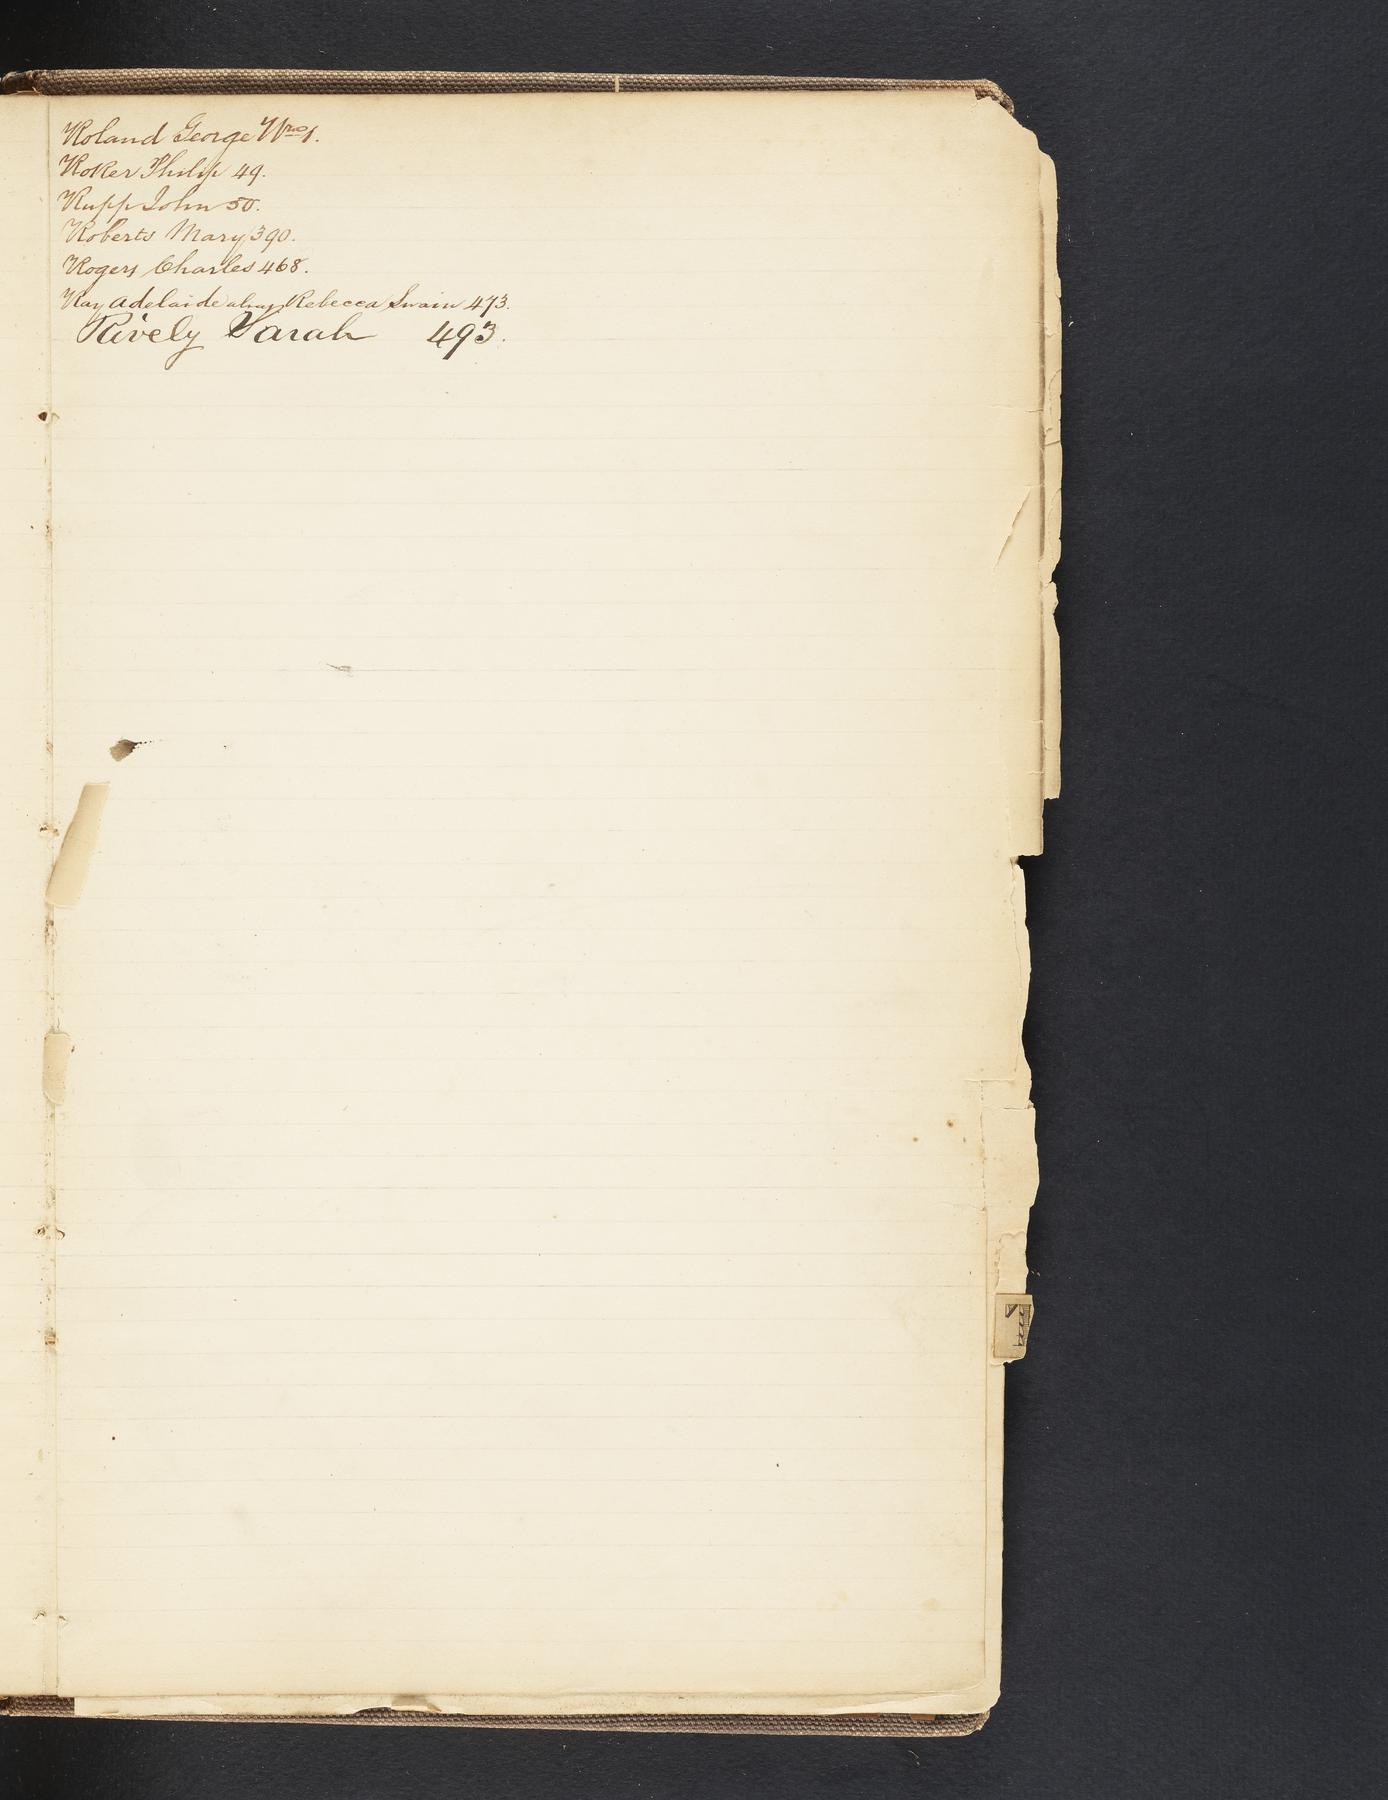 Roland George Wm 1.
Roker Philip 49.
Rupp John 50.
Roberts Mary 390.
Rogers Charles 468.
Ray Adelaide alias Rebecca Swain 473.
Rively Sarah 493.
T